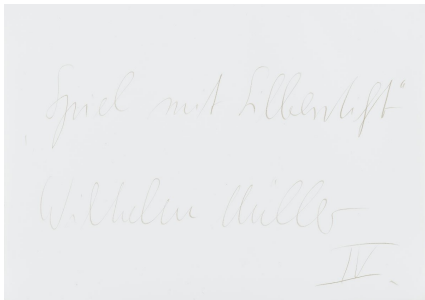 Spiel mit Silberstift"
Wilhelm Müller
IV.